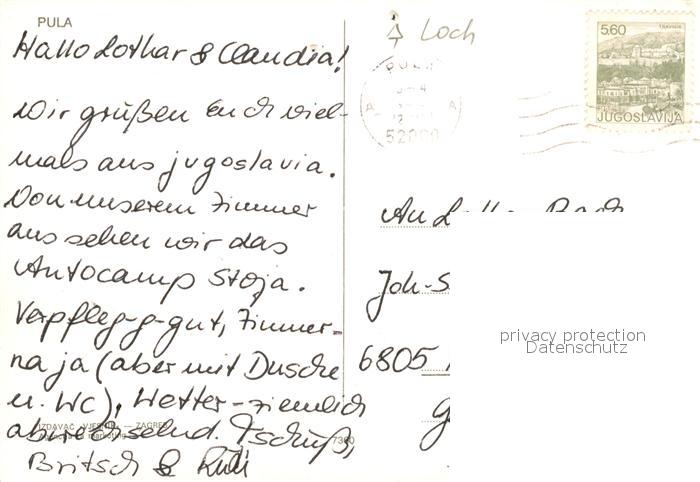 PULA
Hallo Lothar & Claudia!
Wir grüßen Euch viel-
mals aus jugoslavia.
Von unserem Zimmer
aus sehen wir das
Autocamp Stoja.
Verpfleg-g-gut, Zimmer-
na ja (aber mit Dusche
u. WC), Wetter-ziemlich
abwechselnd. Tschüß,
Britsch & Rudi
IZDAVAČ VJESNIK — ZAGREB
7360
Loch
PULA
52000
5,60
TRAVNIK
JUGOSLAVIJA
An
Joh-S
6805
privacy protection
Datenschutz